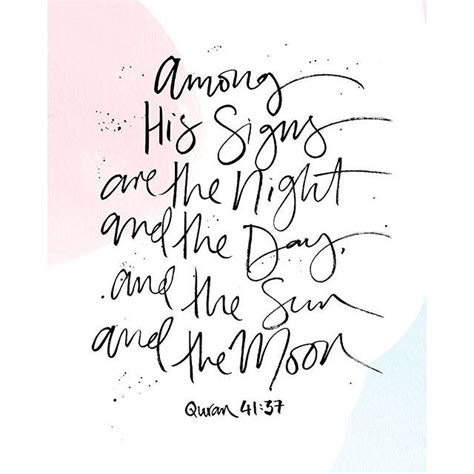 Among
His Signs
are the Night
and the Day,
and the Sun
and the Moon
Quran 41:37